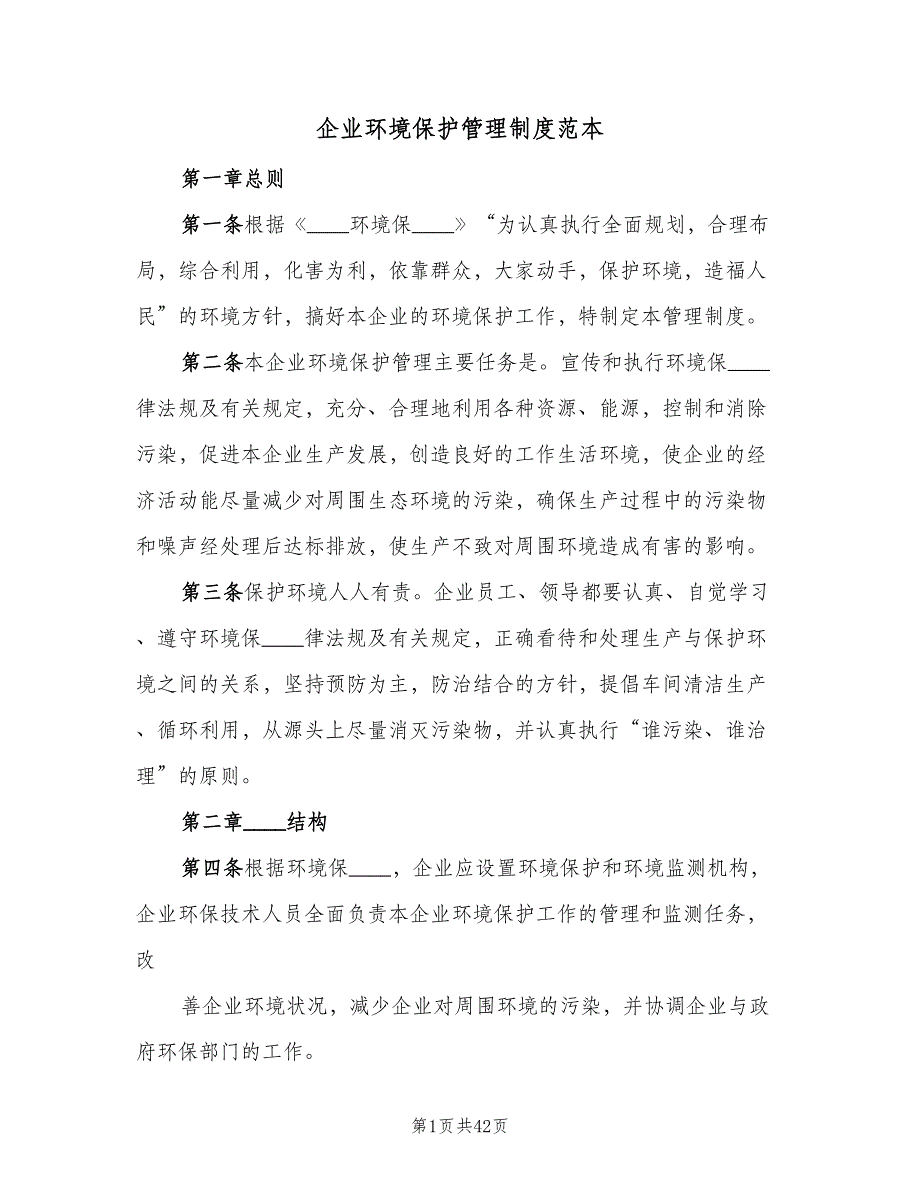 企业环境保护管理制度范本
第一章总则
第一条根据《____环境保____》“为认真执行全面规划，合理布
局，综合利用，化害为利，依靠群众，大家动手，保护环境，造福人
民”的环境方针，搞好本企业的环境保护工作，特制定本管理制度。
第二条本企业环境保护管理主要任务是。宣传和执行环境保____
律法规及有关规定，充分、合理地利用各种资源、能源，控制和消除
污染，促进本企业生产发展，创造良好的工作生活环境，使企业的经
济活动能尽量减少对周围生态环境的污染，确保生产过程中的污染物
和噪声经处理后达标排放，使生产不致对周围环境造成有害的影响。
第三条保护环境人人有责。企业员工、领导都要认真、自觉学习
、遵守环境保____律法规及有关规定，正确看待和处理生产与保护环
境之间的关系，坚持预防为主，防治结合的方针，提倡车间清洁生产
、循环利用，从源头上尽量消灭污染物，并认真执行“谁污染、谁治
理”的原则。
第二章____结构
第四条根据环境保____，企业应设置环境保护和环境监测机构，
企业环保技术人员全面负责本企业环境保护工作的管理和监测任务，
改
善企业环境状况，减少企业对周围环境的污染，并协调企业与政
府环保部门的工作。
第1页共42页